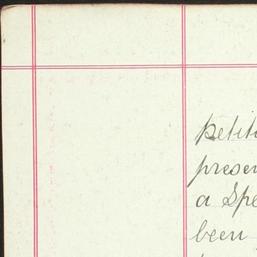 petiti
presen
a Spe
been